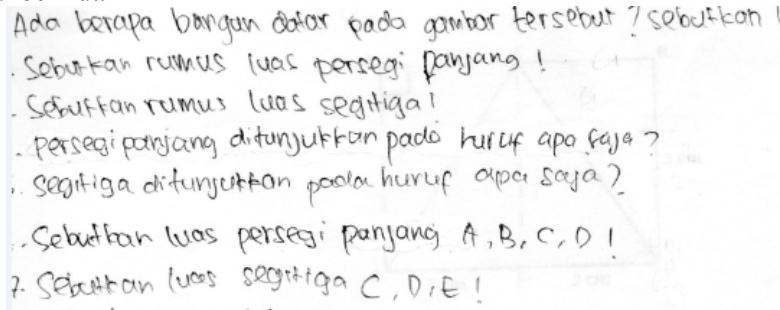 Ada berapa bangun datar pada gambar tersebut? sebutkan!
. Sebutkan rumus luas persegi panjang!
. Sebutkan rumus luas segitiga!
. persegi panjang ditunjukkan pada huruf apa saja?
. segitiga ditunjukkan pada huruf apa saja?
. Sebutkan luas persegi panjang A, B, C, D!
7. Sebutkan luas segitiga C, D, E!